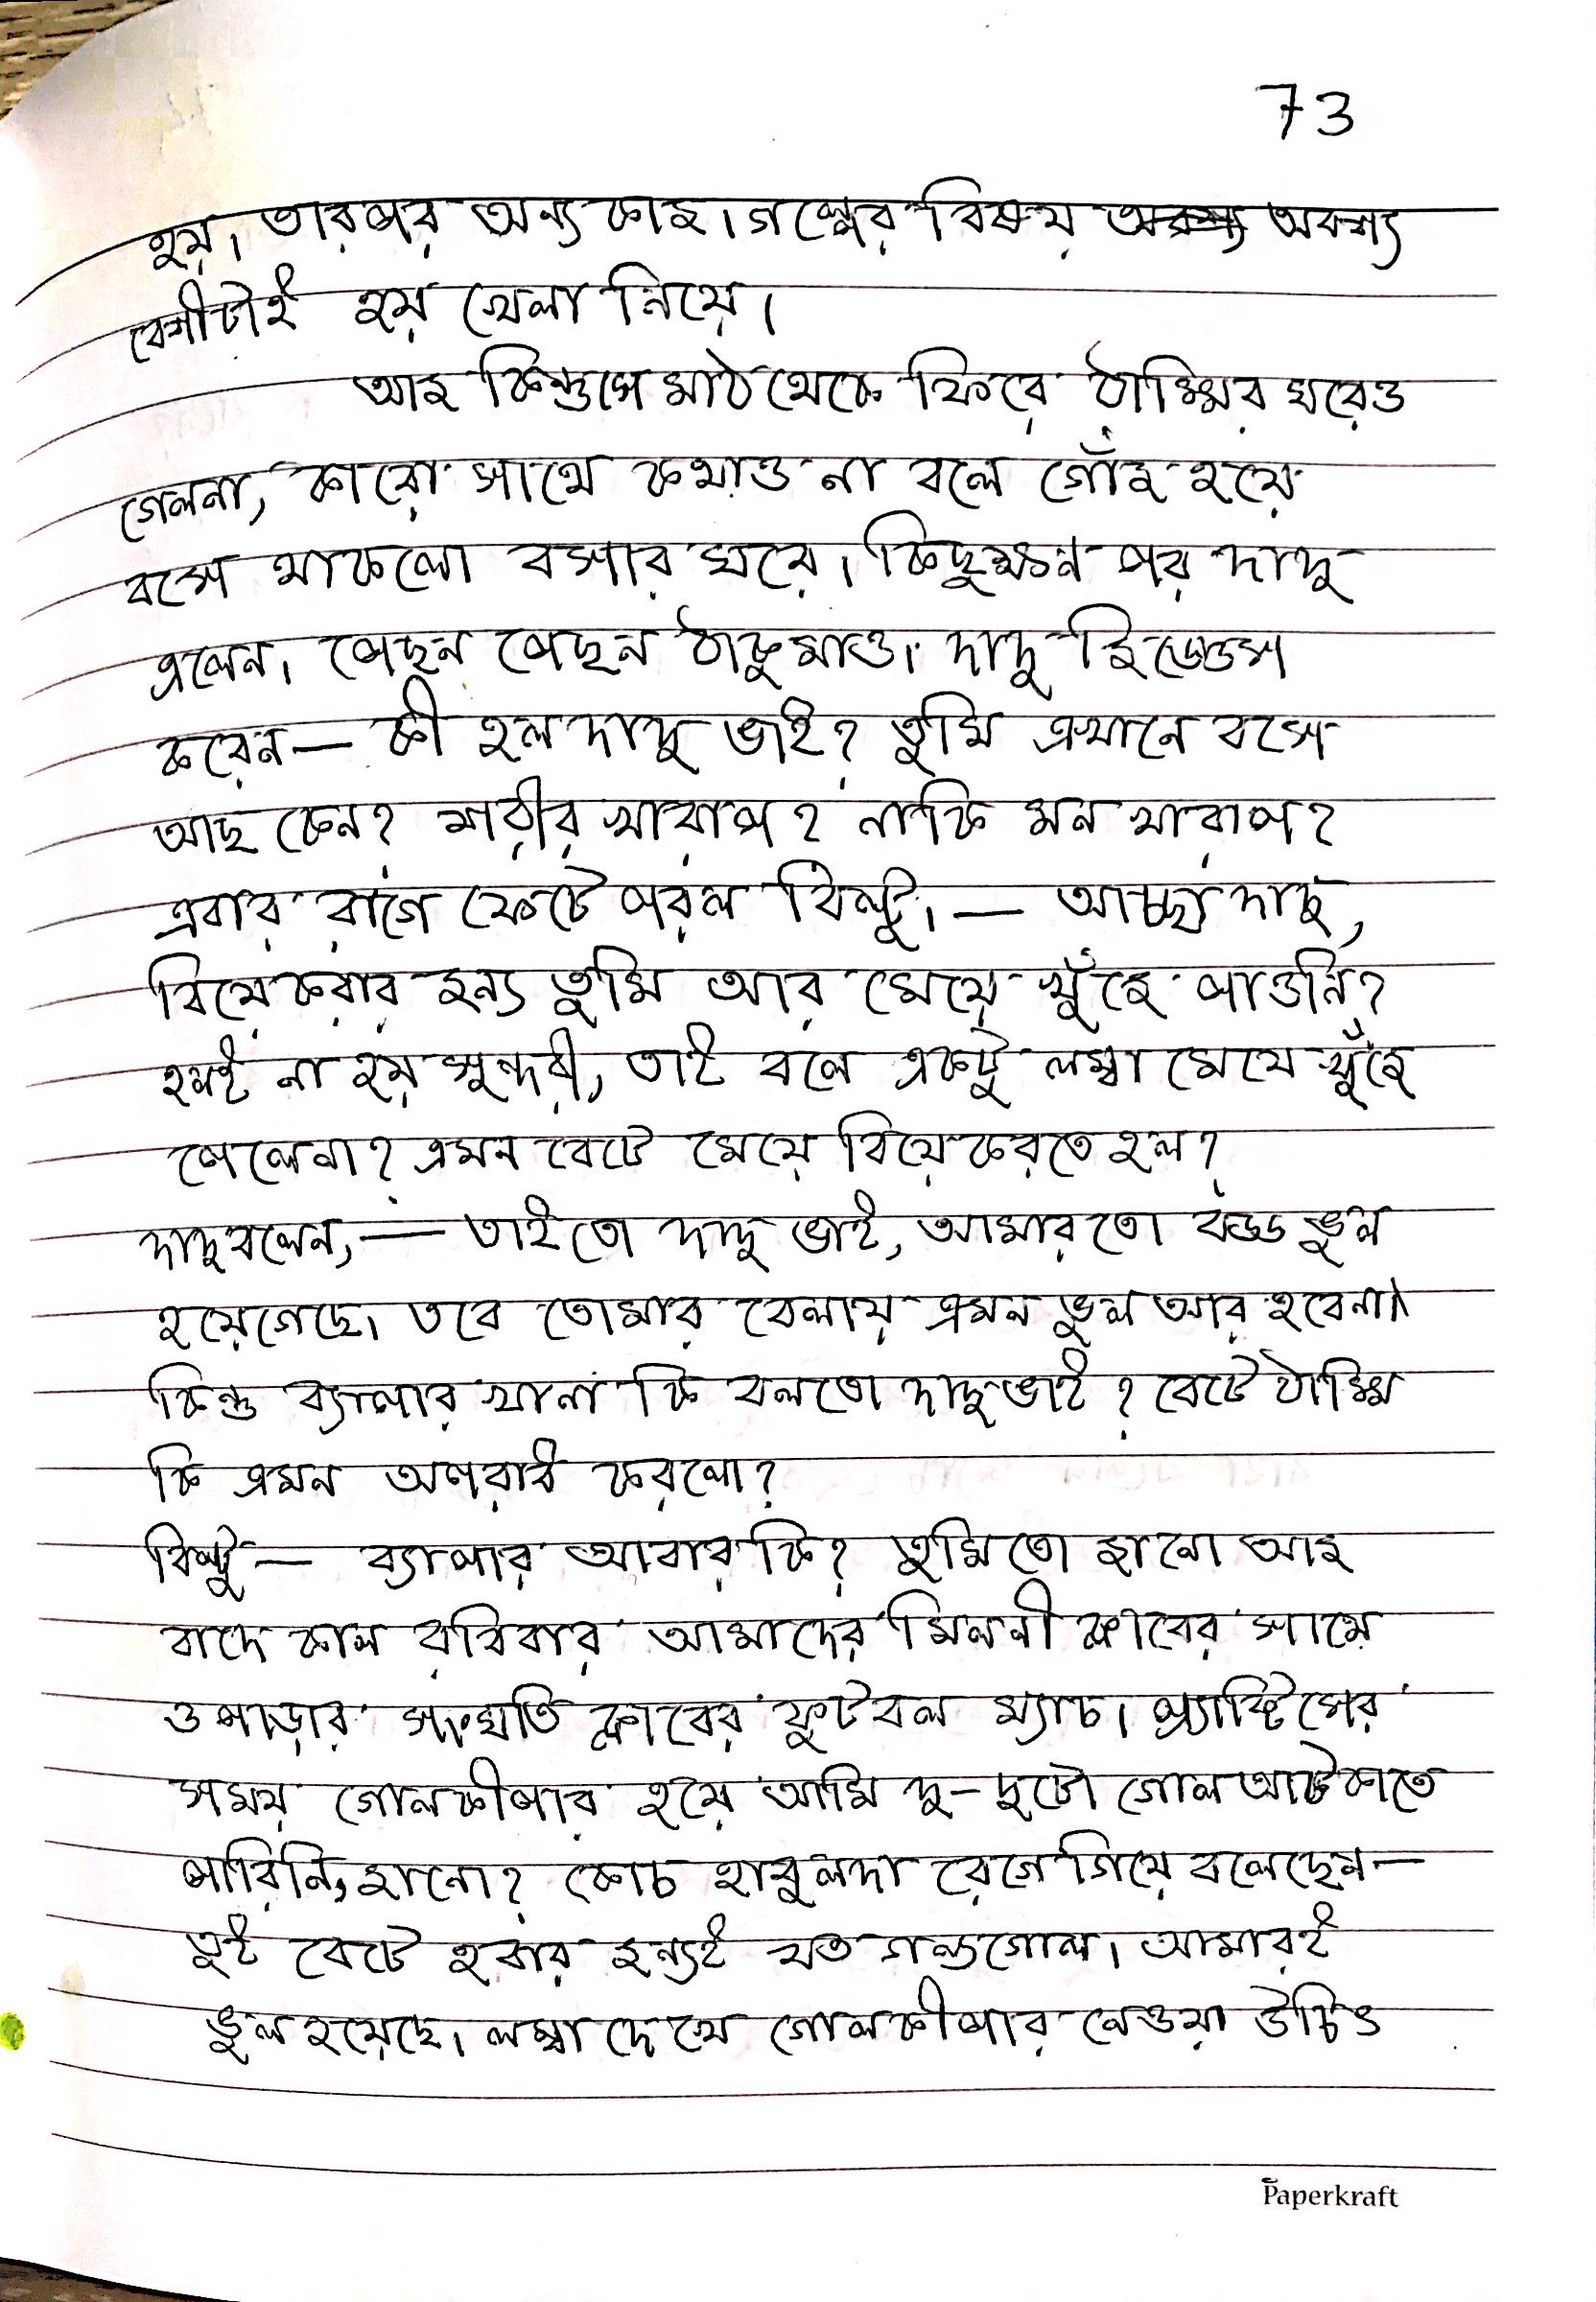 73
হয়। তারপর অন্য কাজ। গল্পের বিষয় অবশ্য
বেশীটাই হয় খেলা নিয়ে।
আজ কিন্তু সে মাঠ থেকে ফিরে ঠাম্মির ঘরেও
গেলনা, কারো সাথে কথাও না বলে গোঁজ হয়ে
বসে থাকলো বসার ঘরে। কিছুক্ষন পর দাদু
এলেন। পেছন পেছন ঠাকুমাও। দাদু জিজ্ঞেস
করেন— কী হল দাদু ভাই? তুমি এখানে বসে
আছ কেন? শরীর খারাপ? নাকি মন খারাপ?
এবার রাগে ফেটে পরল বিল্টু। — আচ্ছা দাদু,
বিয়ে করার জন্য তুমি আর মেয়ে খুঁজে পাওনি?
হলই না হয় সুন্দরী, তাই বলে একটু লম্বা মেয়ে খুঁজে
পেলেনা? এমন বেটে মেয়ে বিয়ে করতে হল?
দাদু বলেন,— তাইতো দাদু ভাই, আমার তো বড্ড ভুল
হয়ে গেছে। তবে তোমার বেলায় এমন ভুল আর হবেনা।
কিন্তু ব্যাপার খানা কি বলতো দাদুভাই? বেটে ঠাম্মি
কি এমন অপরাধ করলো?
বিল্টু — ব্যাপার আবার কি? তুমি তো জানো আজ
বাদে কাল রবিবার আমাদের মিলনী ক্লাবের সাথে
ওপাড়ার সংহতি ক্লাবের ফুটবল ম্যাচ। প্র্যাক্টিসের
সময় গোলকীপার হয়ে আমি দু-দুটো গোল আটকাতে
পারিনি, জানো? কোচ হাবুলদা রেগে গিয়ে বলেছেন—
তুই বেটে হবার জন্যই যত গন্ডগোল। আমারই
ভুল হয়েছে। লম্বা দেখে গোলকীপার নেওয়া উচিৎ
Paperkraft